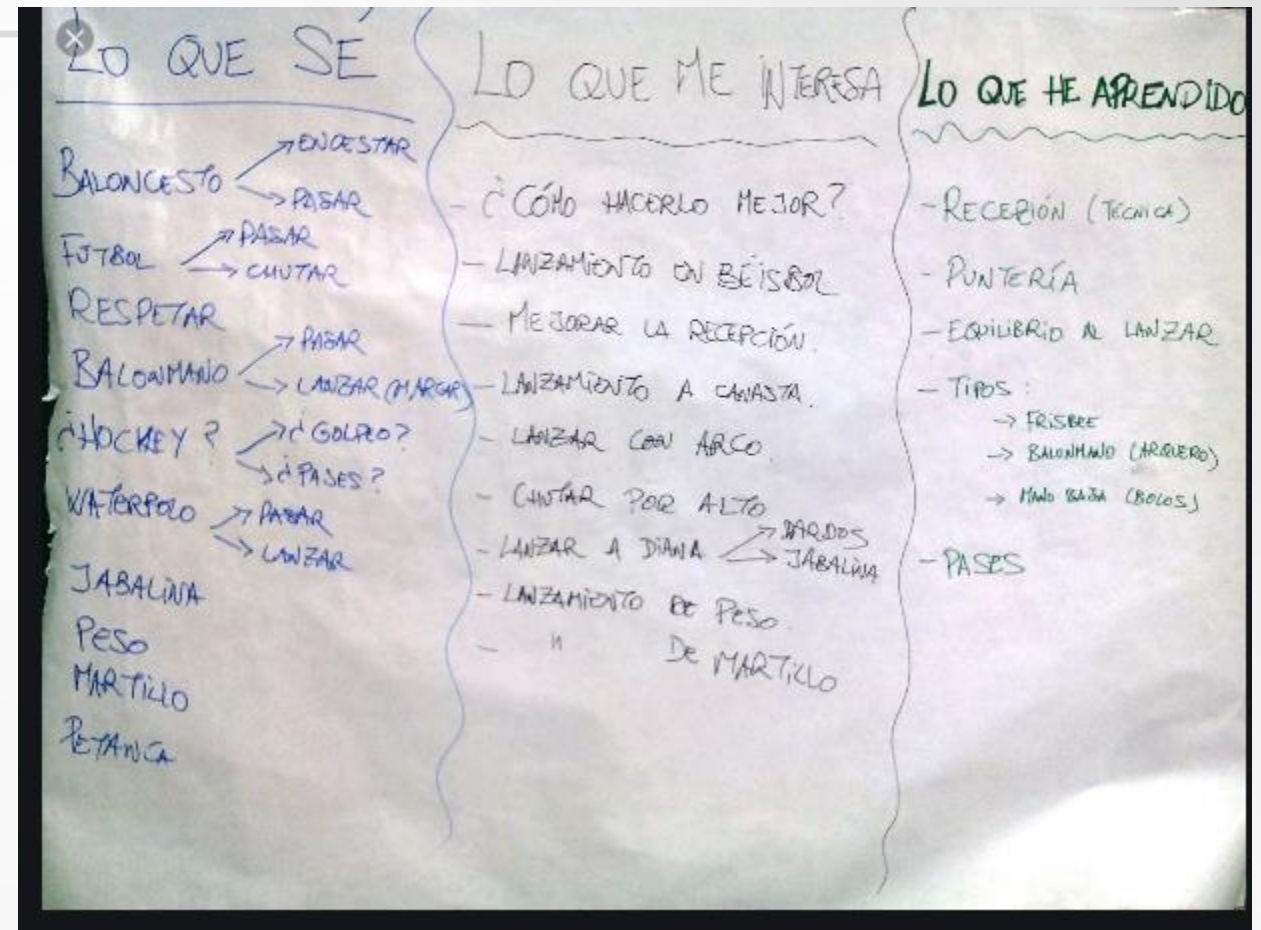 LO QUE SÉ
BALONCESTO → ENCESTAR
→ PASAR
FUTBOL → PASAR
→ CHUTAR
RESPETAR
BALONMANO → PASAR
→ LANZAR (MARCAR)
¿HOCKEY? → ¿GOLPEO?
→ ¿PASES?
WATERPOLO → PASAR
→ LANZAR
JABALINA
PESO
MARTILLO
PETANCA
LO QUE ME INTERESA
- ¿CÓMO HACERLO MEJOR?
- LANZAMIENTO EN BÉISBOL
- MEJORAR LA RECEPCIÓN.
- LANZAMIENTO A CANASTA.
- LANZAR CON ARCO.
- CHUTAR POR ALTO
- LANZAR A DIANA → DARDOS
→ JABALINA
- LANZAMIENTO DE PESO.
- " DE MARTILLO
LO QUE HE APRENDIDO
- RECEPIÓN (TÉCNICA)
- PUNTERÍA
- EQUILIBRIO AL LANZAR
- TIPOS:
→ FRISBEE
→ BALONMANO (ARQUERO)
→ MANO BAJA (BOLOS)
- PASES